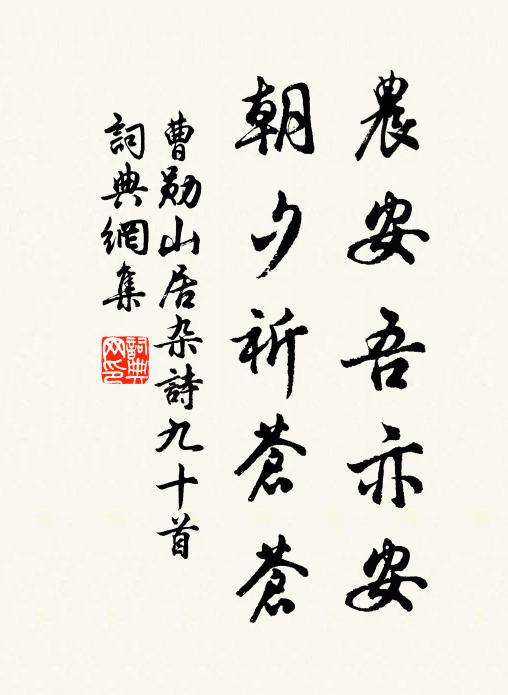 農安吾亦安
朝夕祈蒼蒼
曹勛山居杂詩九十首
詞典網集
詞典網印